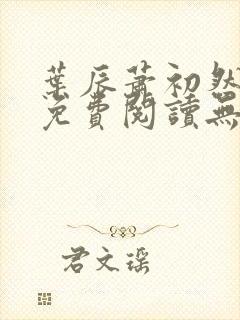 葉辰蕭初然
免費閱讀無
君文瑤